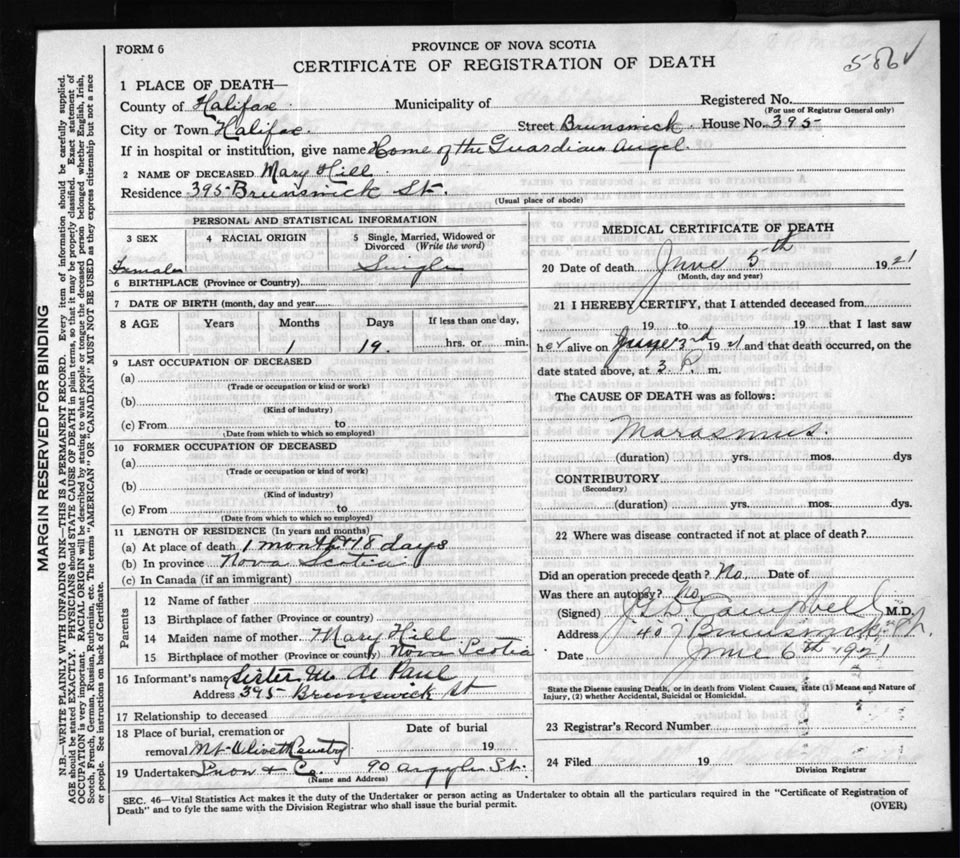 FORM 6
PROVINCE OF NOVA SCOTIA
CERTIFICATE OF REGISTRATION OF DEATH
586
1 PLACE OF DEATH—
County of Halifax Municipality of Registered No.
(For use of Registrar General only)
City or Town Halifax. Street Brunswick House No. 395
If in hospital or institution, give name Home of the Guardian Angel.
2 NAME OF DECEASED Mary Hill
Residence 395 Brunswick St.
(Usual place of abode)
PERSONAL AND STATISTICAL INFORMATION
3 SEX 4 RACIAL ORIGIN 5 Single, Married, Widowed or
Divorced (Write the word)
Female Single
6 BIRTHPLACE (Province or Country)
7 DATE OF BIRTH (month, day and year)
8 AGE Years Months Days If less than one day,
1 19. hrs. or min.
9 LAST OCCUPATION OF DECEASED
(a)
(Trade or occupation or kind or work)
(b)
(Kind of industry)
(c) From to
(Date from which to which so employed)
10 FORMER OCCUPATION OF DECEASED
(a)
(Trade or occupation or kind of work)
(b)
(Kind of industry)
(c) From to
(Date from which to which so employed)
11 LENGTH OF RESIDENCE (In years and months)
(a) At place of death 1 month 18 days
(b) In province Nova Scotia
(c) In Canada (if an immigrant)
Parents
12 Name of father
13 Birthplace of father (Province or country)
14 Maiden name of mother Mary Hill
15 Birthplace of mother (Province or country) Nova Scotia
16 Informant's name Sister M. de Paul
Address 395 Brunswick St
17 Relationship to deceased
18 Place of burial, cremation or Date of burial
removal Mt. Olivet 19
19 Undertaker Snow & Co. 90 Argyle St.
(Name and Address)
MEDICAL CERTIFICATE OF DEATH
20 Date of death June 5th 1921
(Month, day and year)
21 I HEREBY CERTIFY, that I attended deceased from
19 to 19 that I last saw
her alive on June 3rd 1921 and that death occurred, on the
date stated above, at 3 P. m.
The CAUSE OF DEATH was as follows:
Marasmus.
(duration) yrs. mos. dys
CONTRIBUTORY
(Secondary)
(duration) yrs. mos. dys.
22 Where was disease contracted if not at place of death?
Did an operation precede death? No Date of
Was there an autopsy? No
(Signed) Campbell M.D.
Address 407 Brunswick St.
Date June 6th 1921
State the Disease causing Death, or in death from Violent Causes, state (1) Means and Nature of
Injury, (2) whether Accidental, Suicidal or Homicidal.
23 Registrar's Record Number
24 Filed 19
Division Registrar
SEC. 46—Vital Statistics Act makes it the duty of the Undertaker or person acting as Undertaker to obtain all the particulars required in the "Certificate of Registration of
Death" and to fyle the same with the Division Registrar who shall issue the burial permit.
(OVER)
MARGIN RESERVED FOR BINDING
N.B.—WRITE PLAINLY WITH UNFADING INK—THIS IS A PERMANENT RECORD. Every item of information should be carefully supplied.
AGE should be stated EXACTLY. PHYSICIANS should STATE CAUSE OF DEATH in plain terms, so that it may be properly classified. Exact statement of
OCCUPATION is very important. RACIAL ORIGIN will be described by stating to what people or tongue the deceased person belonged whether English, Irish,
Scotch, French, German, Russian, Ruthenian, etc. The terms "AMERICAN" or "CANADIAN" MUST NOT BE USED as they express citizenship but not a race
or people. See instructions on back of Certificate.